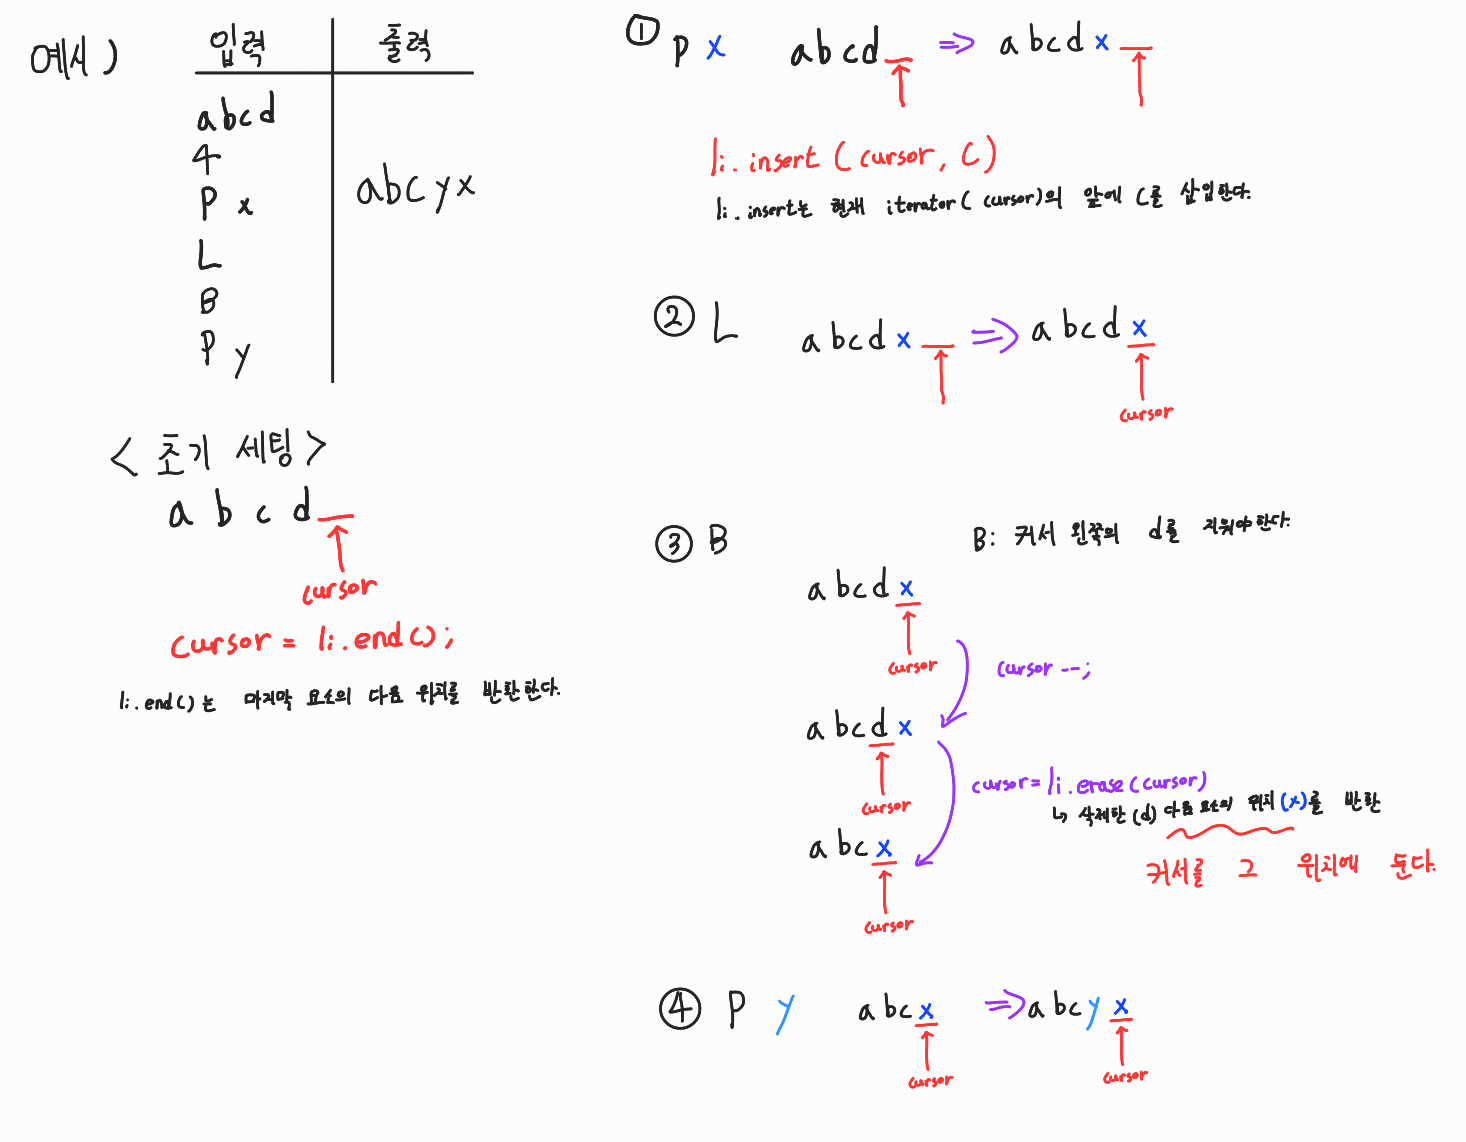 예시)
입력 출력
abcd
4
P x
abcyx
L
B
P y
<초기 세팅>
abcd
cursor
cursor = li.end();
li.end()는 마지막 요소의 다음 위치를 반환한다.
① P x abcd ⇒ abcdx
li.insert(cursor, C)
li.insert는 현재 iterator(cursor)의 앞에 C를 삽입한다.
② L abcdx ⇒ abcdx
cursor
③ B
B: 커서 왼쪽의 d를 지워야한다.
abcdx
cursor
cursor--;
abcdx
cursor
cursor = li.erase(cursor)
↳ 삭제한 (d) 다음 요소의 위치(x)를 반환
abcx
cursor
커서를 그 위치에 둔다.
④ P y abcx ⇒ abcyx
cursor cursor